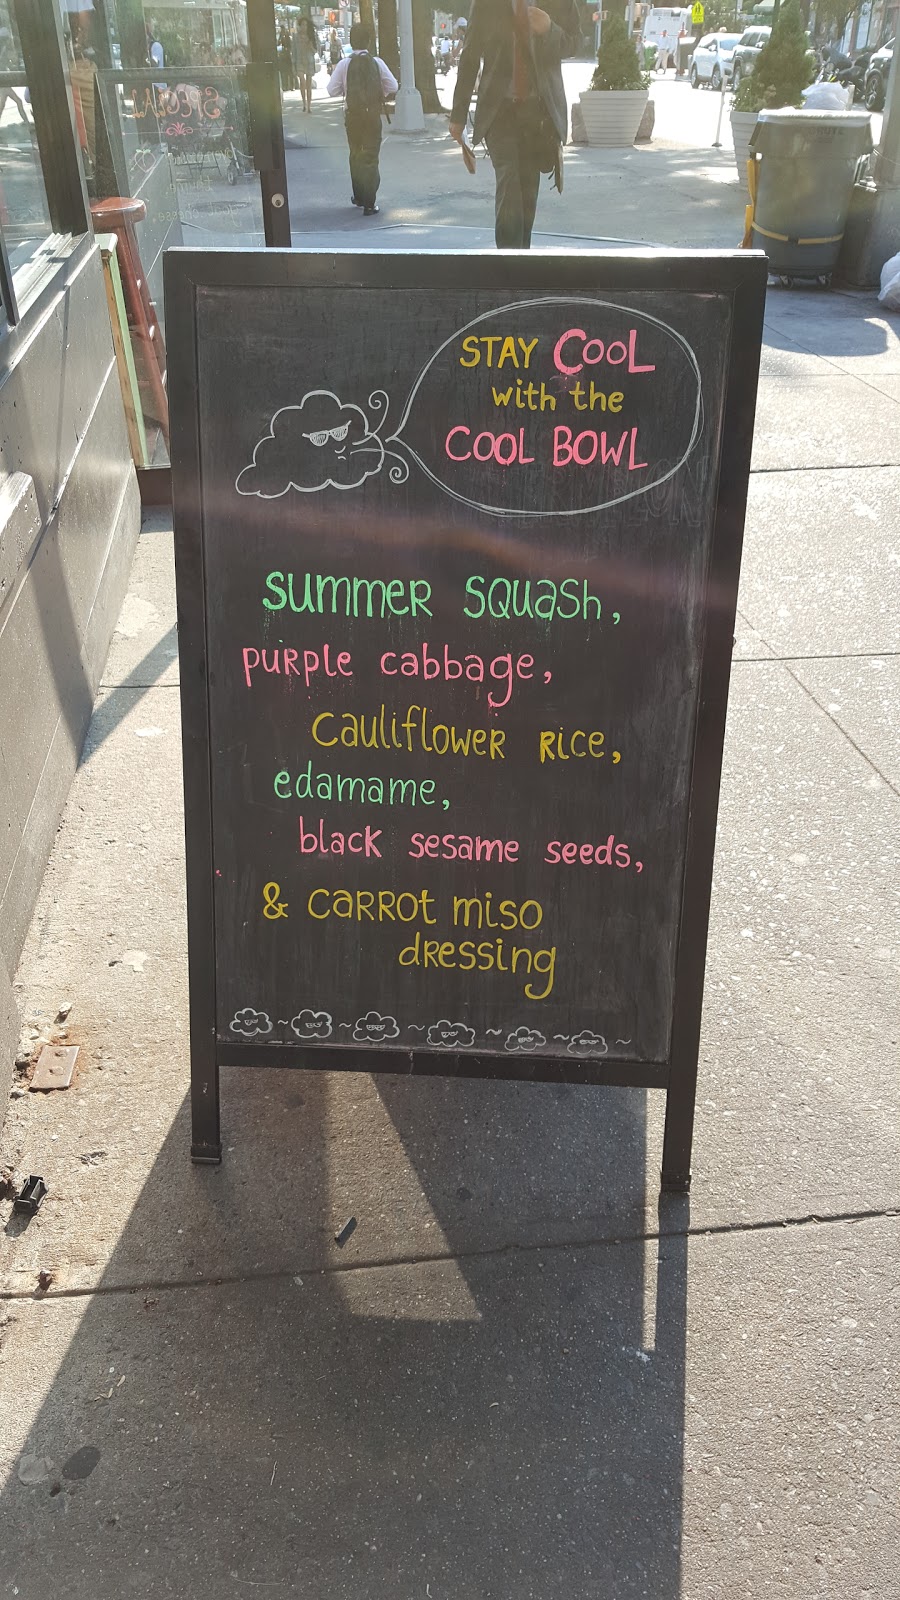 STAY COOL
with the
COOL BOWL
summer squash,
purple cabbage,
cauliflower rice,
edamame,
black sesame seeds,
& carrot miso
dressing
SPECIAL